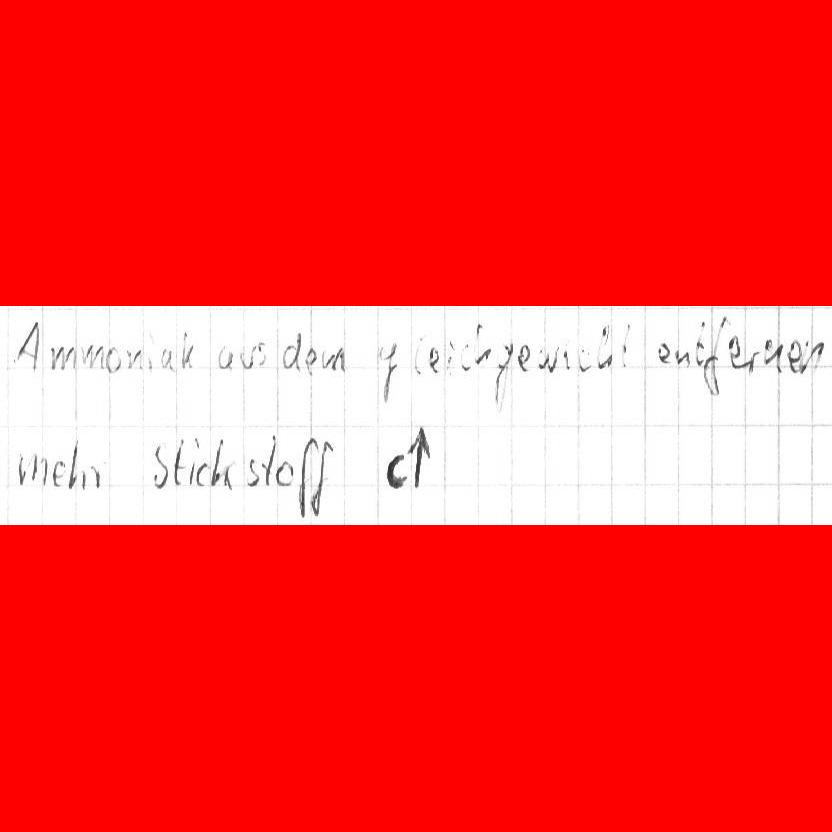 Ammoniak aus dem gleichgewicht entfernen
mehr Stickstoff c↑